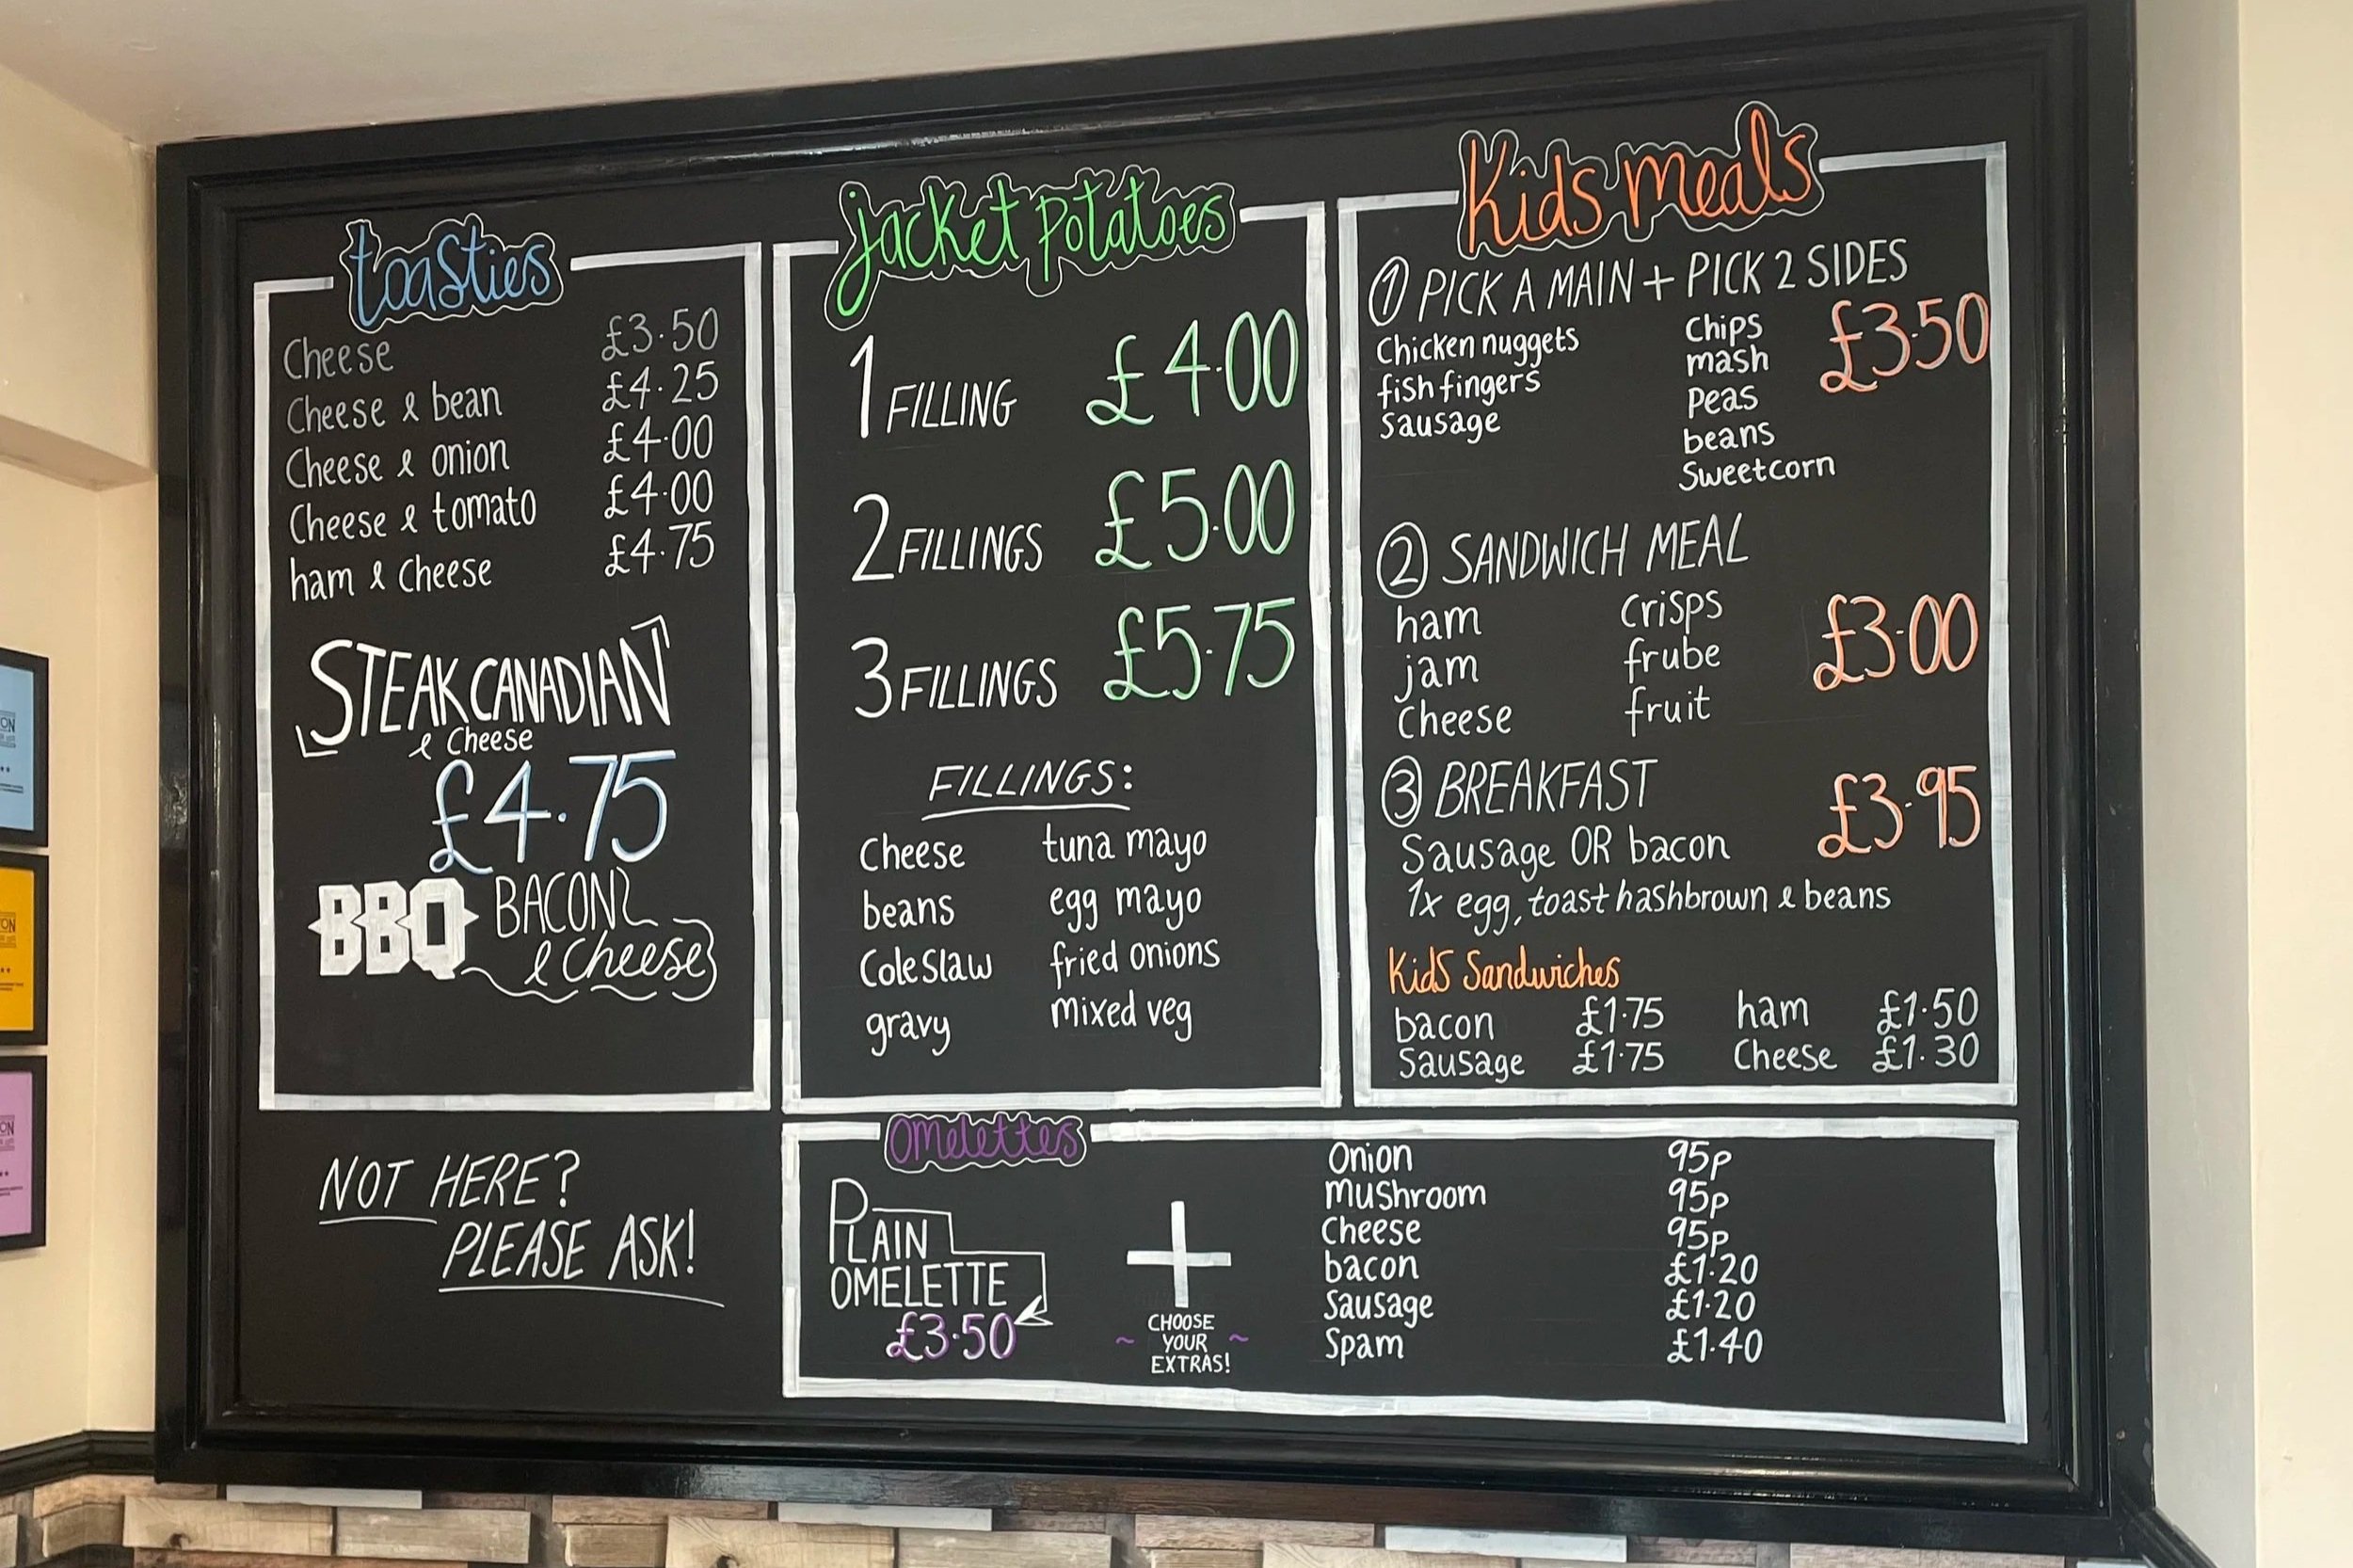 toasties
Cheese £3.50
Cheese & bean £4.25
Cheese & onion £4.00
Cheese & tomato £4.00
ham & cheese £4.75
STEAK CANADIAN
& Cheese
£4.75
BBQ BACON
& Cheese
jacket potatoes
1 FILLING £4.00
2 FILLINGS £5.00
3 FILLINGS £5.75
FILLINGS:
Cheese tuna mayo
beans egg mayo
Coleslaw fried onions
gravy mixed veg
Kids meals
① PICK A MAIN + PICK 2 SIDES
£3.50
Chicken nuggets
fish fingers
Sausage
Chips
mash
Peas
beans
Sweetcorn
② SANDWICH MEAL
ham crisps
jam frube £3.00
Cheese fruit
③ BREAKFAST £3.95
Sausage OR bacon
1x egg, toast hashbrown & beans
Kids Sandwiches
bacon £1.75 ham £1.50
Sausage £1.75 Cheese £1.30
NOT HERE?
PLEASE ASK!
Omelettes
PLAIN
OMELETTE
£3.50
+
~ CHOOSE
YOUR
EXTRAS! ~
Onion 95p
mushroom 95p
Cheese 95p
bacon £1.20
Sausage £1.20
Spam £1.40